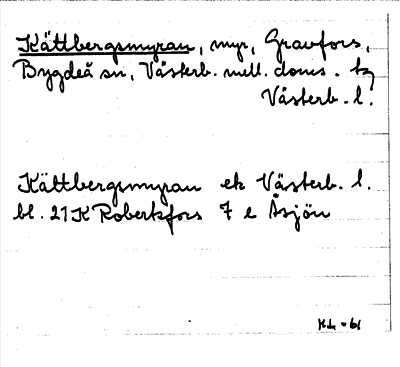 Kättbergsmyran, myr, Granfors,
Bygdeå sn, Västerb. mell. doms. tg
Västerb. l.
Kättbergsmyran ek Västerb. l.
bl. 21 K Robertsfors 7 e Åsjön